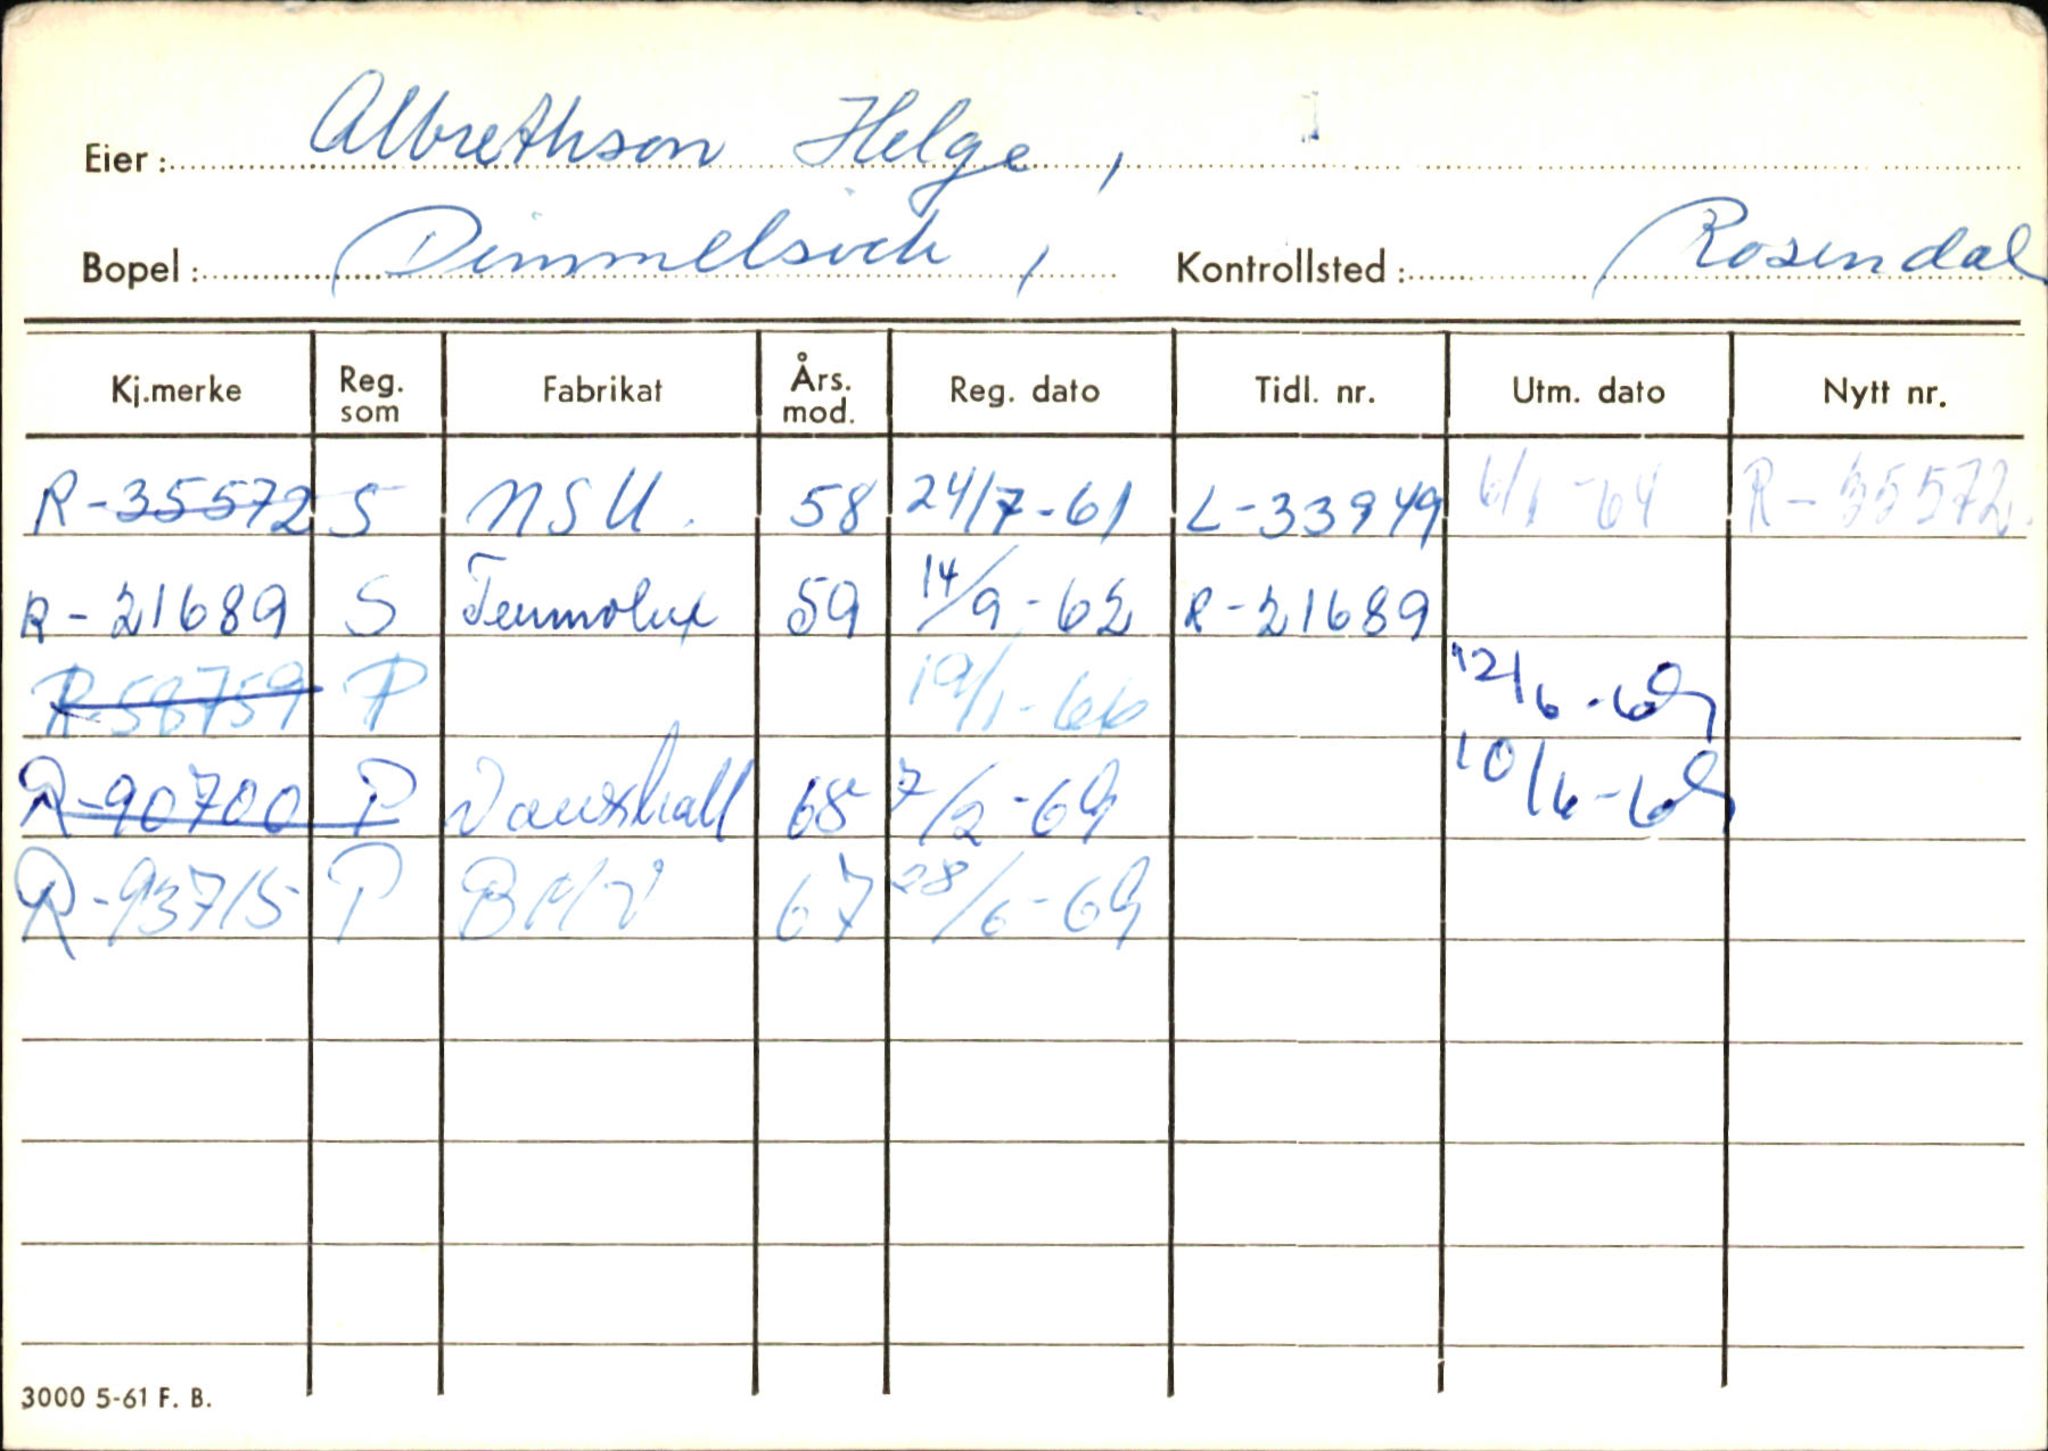 Eier: Albrethson Helge,
Bopel: Dimmelsvik, Kontrollsted: Rosendal
Kj.merke Reg. som Fabrikat Års. mod. Reg. dato Tidl. nr. Utm. dato Nytt nr.
R-35572 S NSU. 58 24/7-61 L-33949 6/1-64 R-35572.
R-21689 S Tenmolux 59 14/9-62 R-21689
R-58759 P 19/1-66 12/6-69
R-90700 P Vauxhall 68 7/2-69 10/6-69
R-93715 P BMW 67 28/6-69
3000 5-61 F. B.